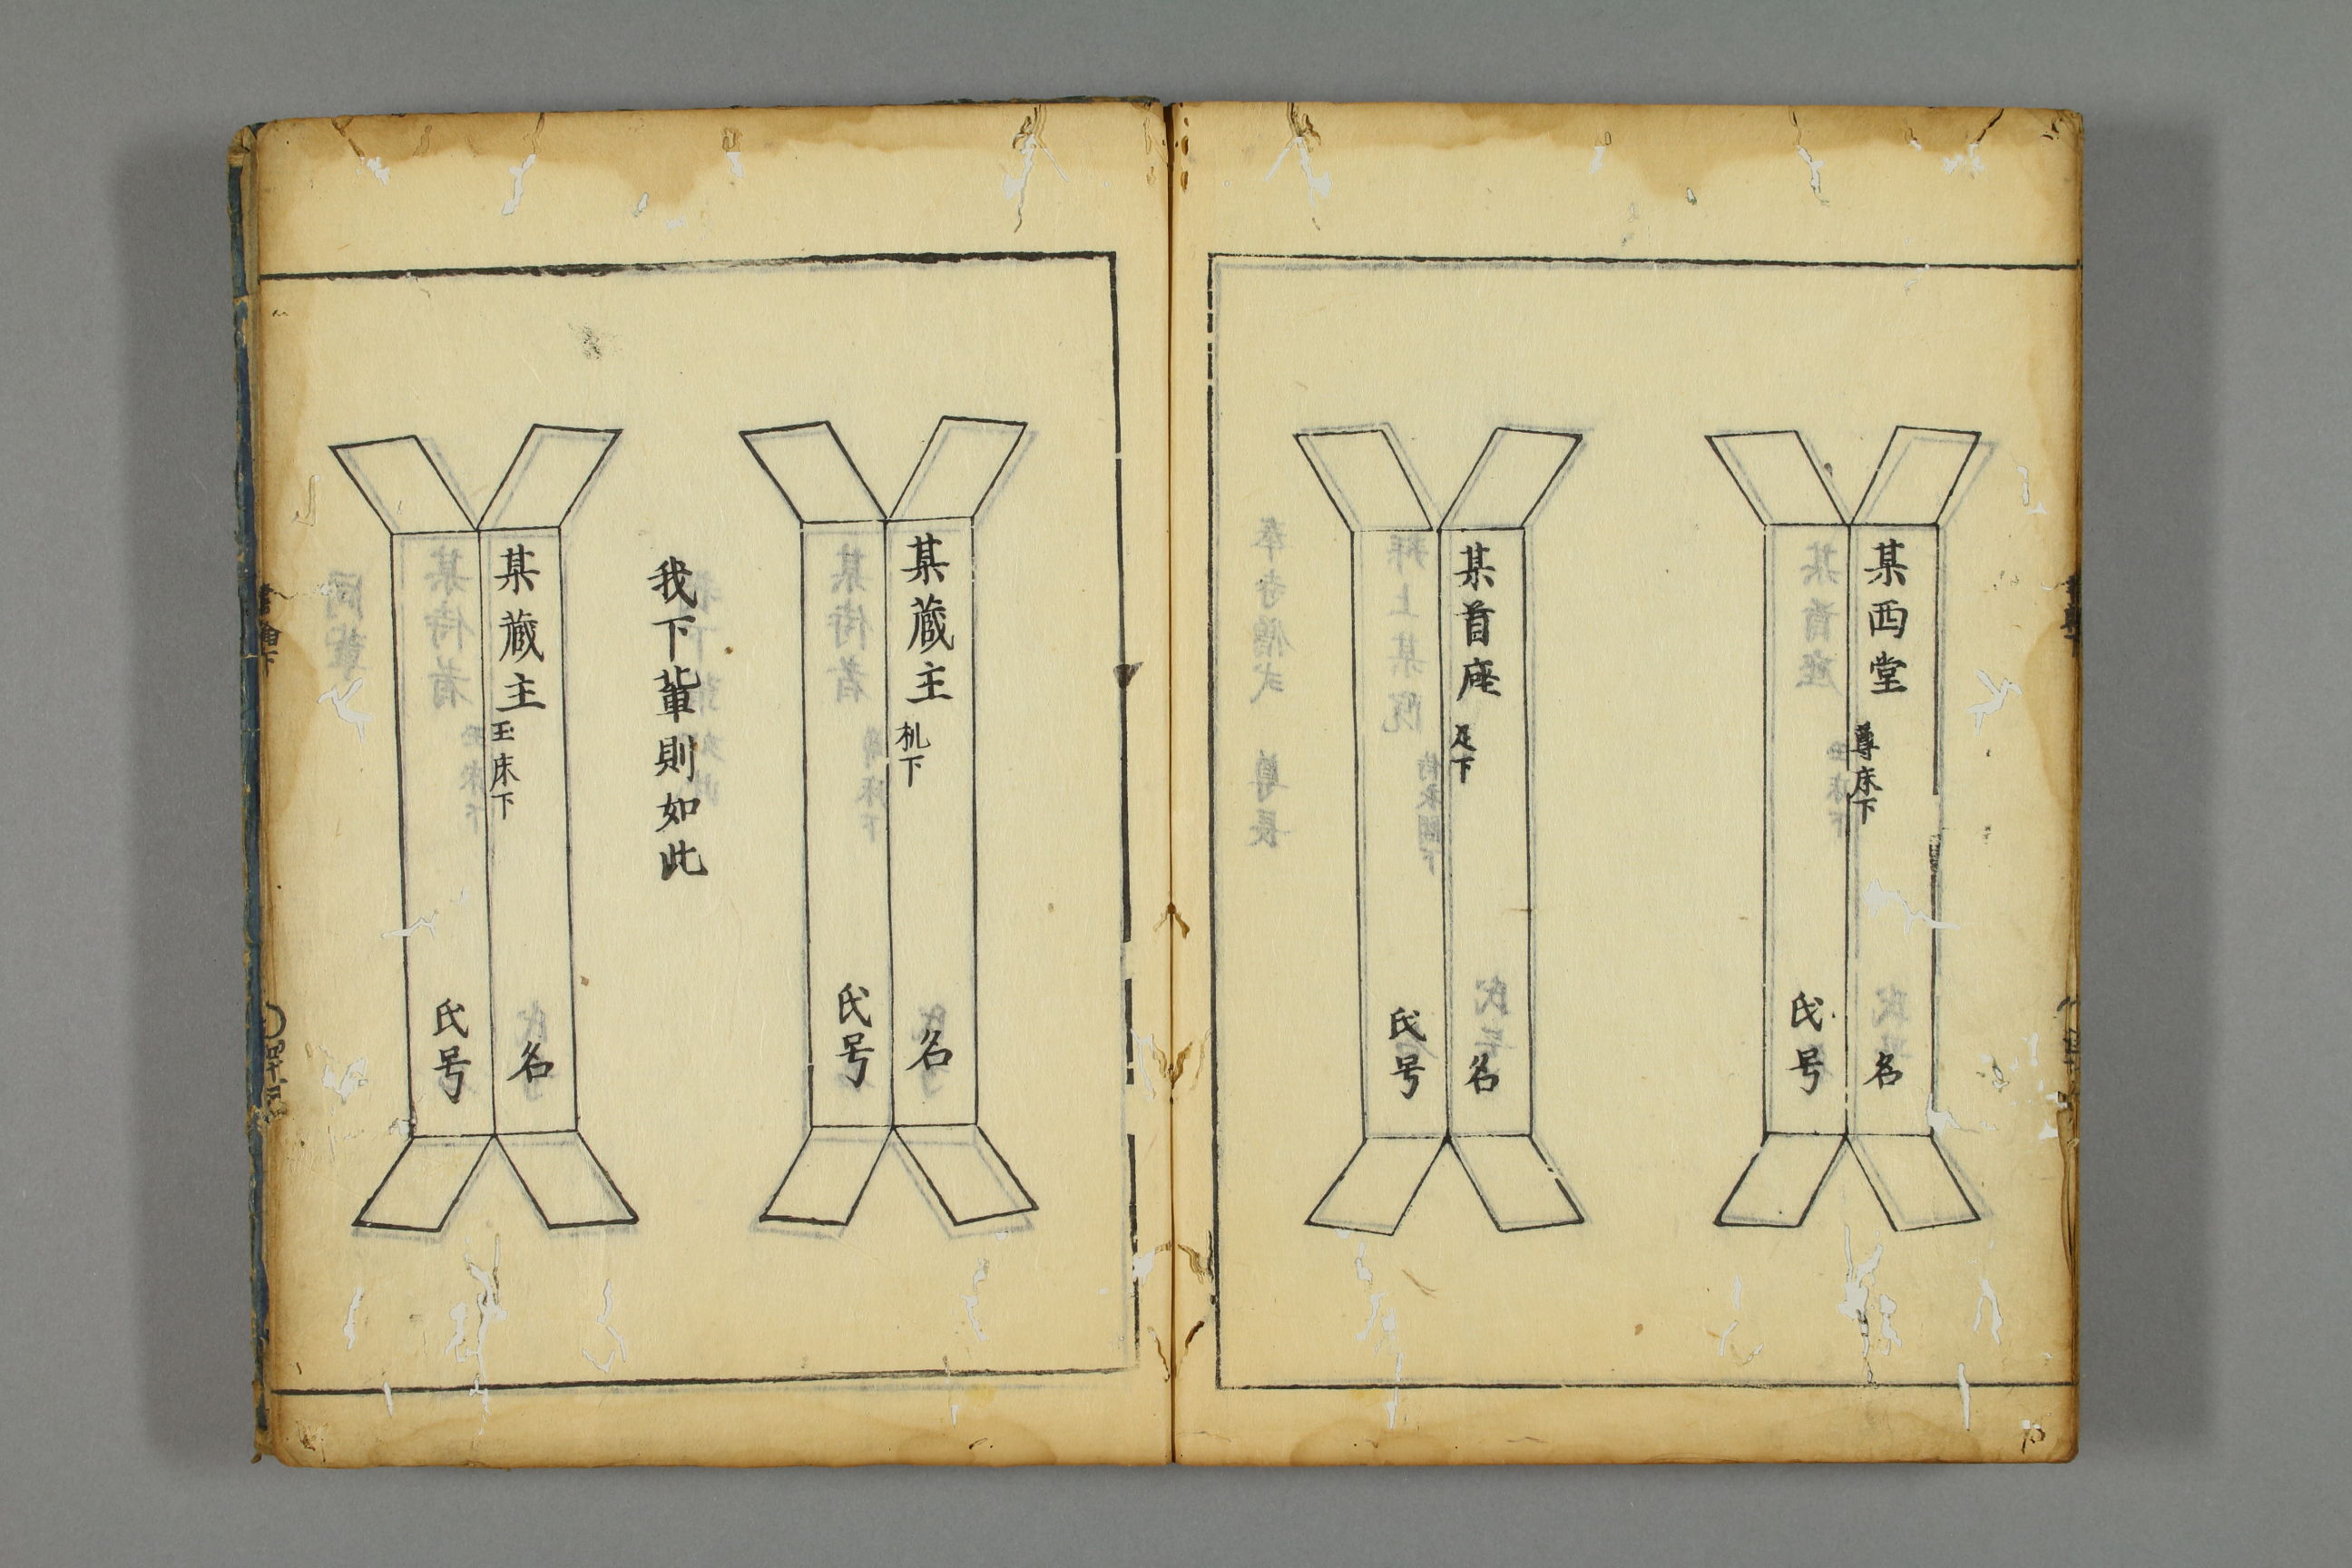 某西堂 尊床下 名
氏号
某首座 足下 名
氏号
某蔵主 机下 名
氏号
我下輩則如此
某蔵主 玉床下 名
氏号